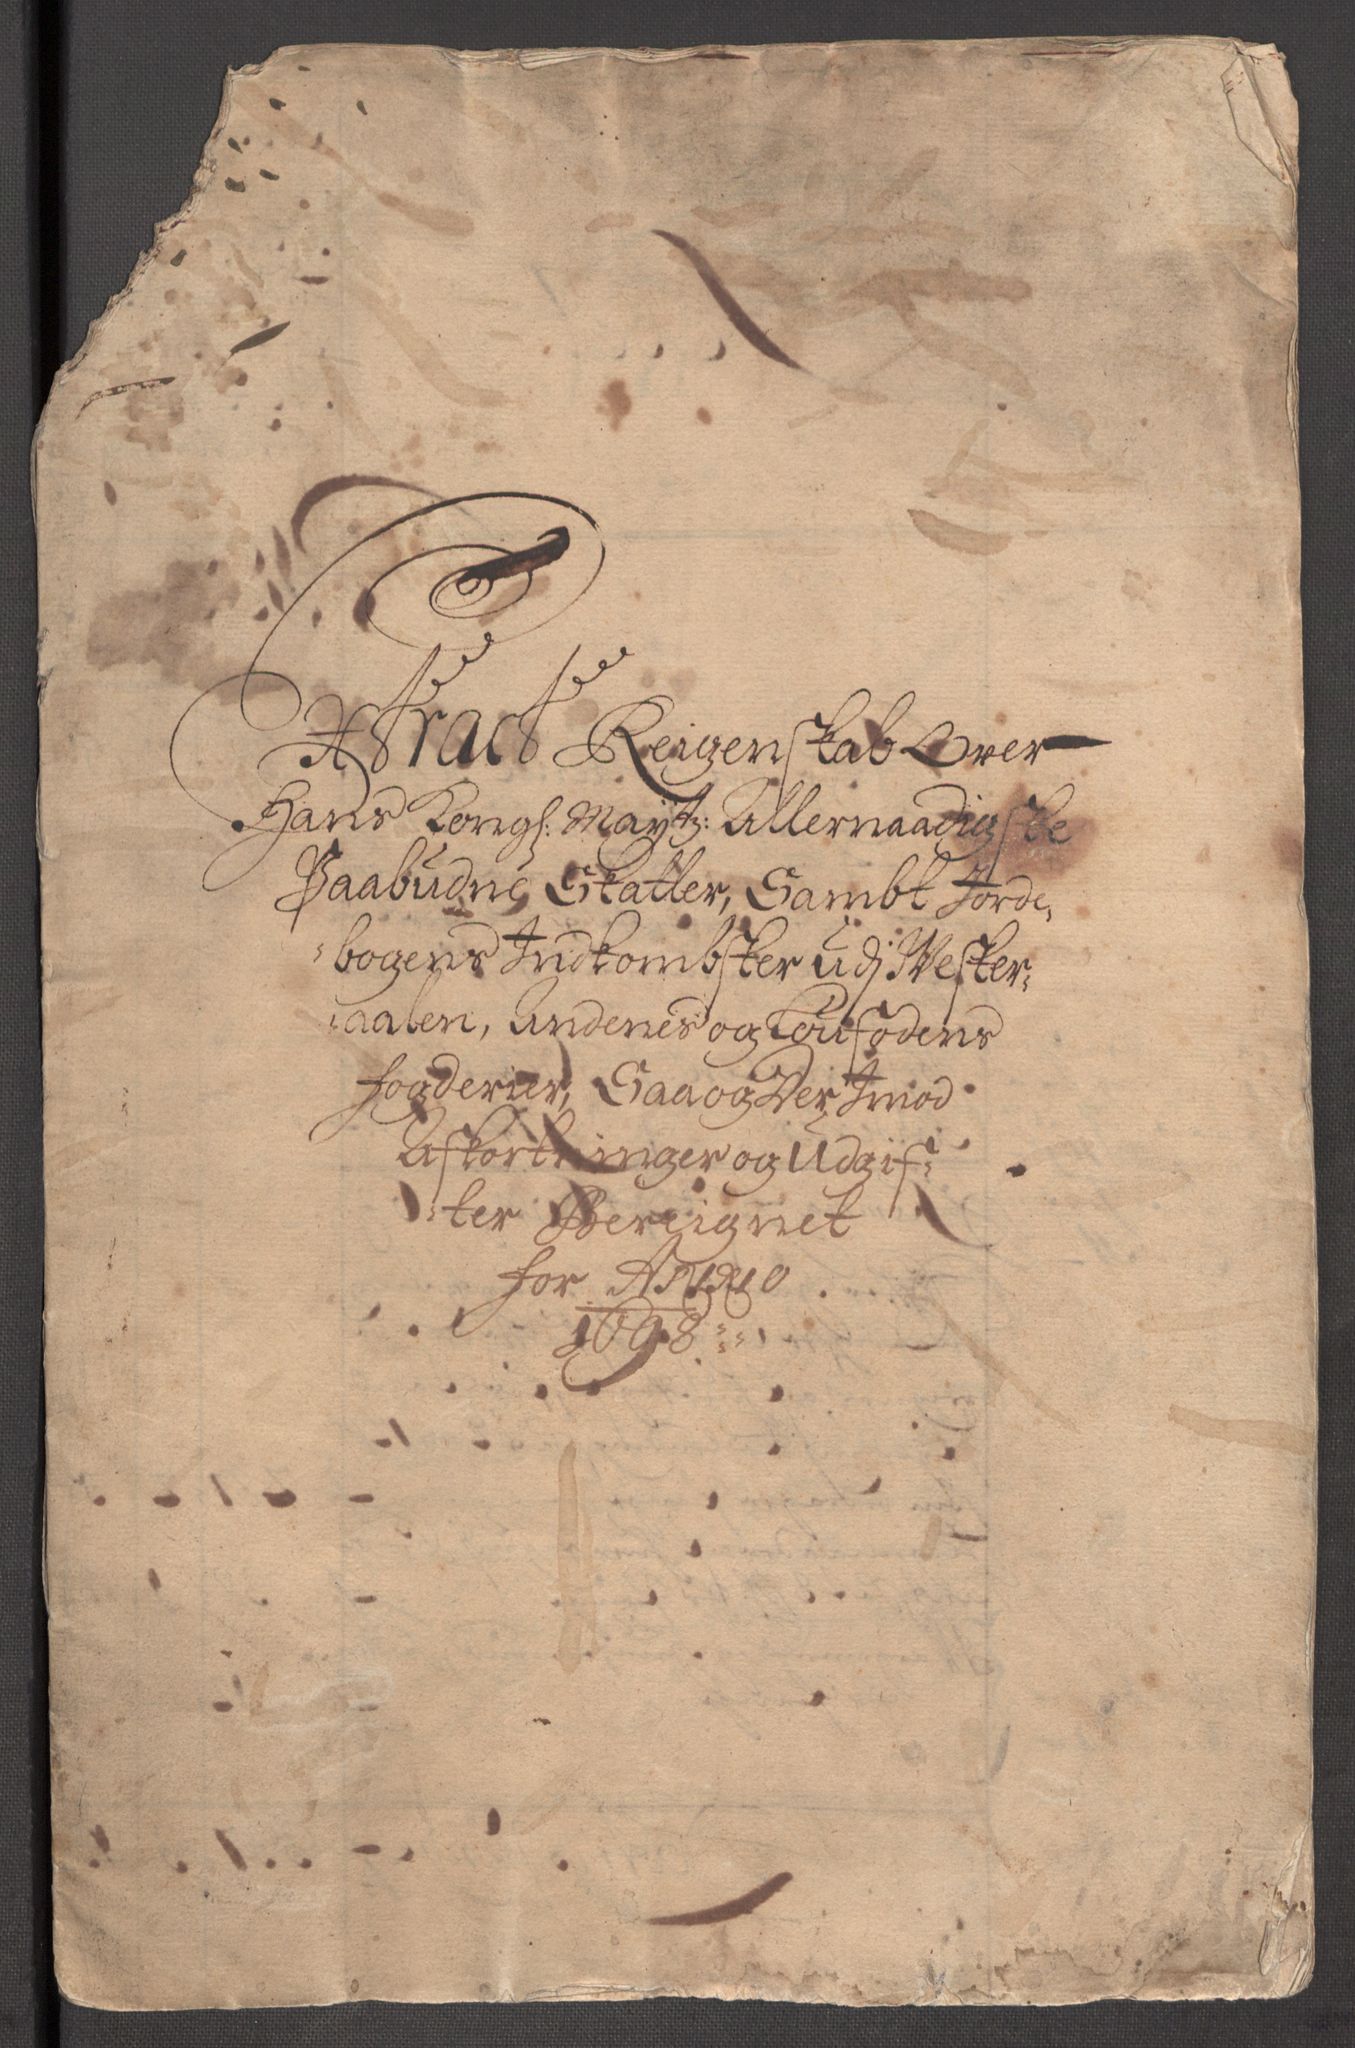 Extract Reigenskab Over
Hans Kongl: Maytz: Allernaadigste
Paabudne Skatter, Sambt Jorde-
bogens Indkombster udj Wester-
aalen, Andenes og Loufodens
fogderier, Saa og Der Imod
Afkortninger og Udgif-
ter Bereignet
for ANNO
1698